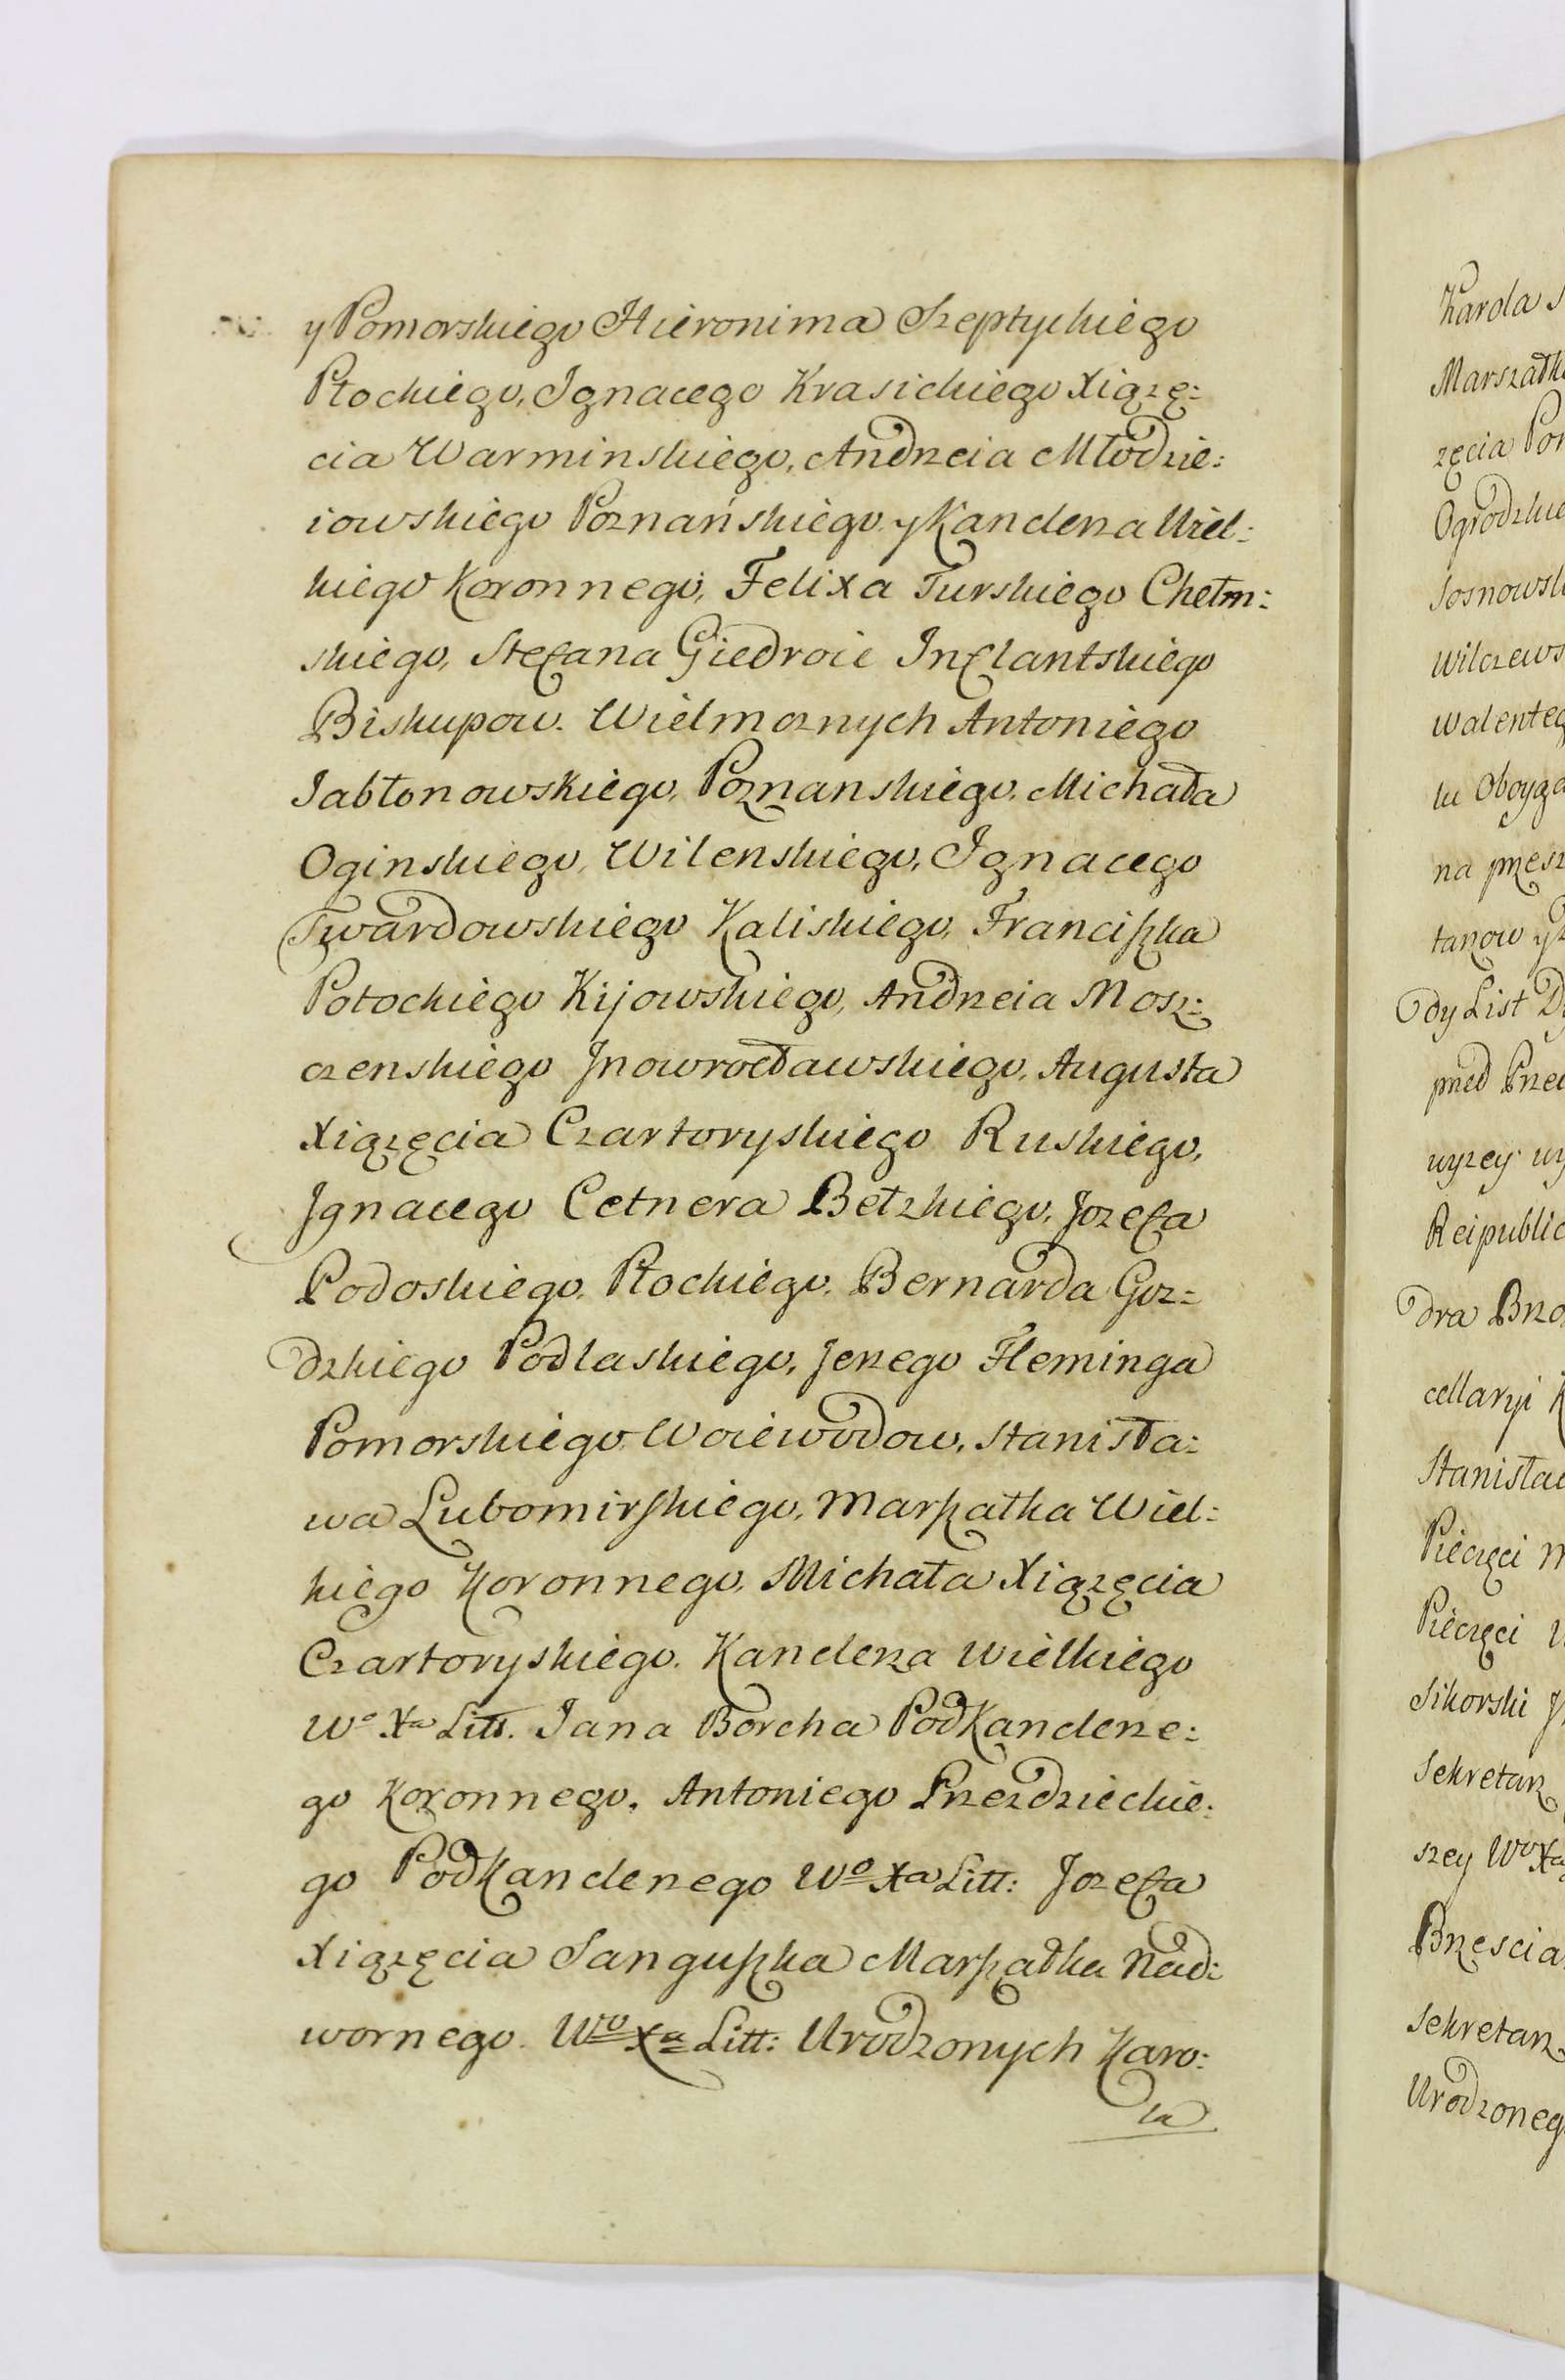 y Pomorskiego Hieronima Szeptyckiego
Płockiego, Ignacego Krasickiego Xiązę:
cia Warminskiego, Andrzeia Młodzie:
iowskiego Poznańskiego y Kanclerza Wiel:
kiego Koronnego, Felixa Turskiego Chełm:
skiego, Stefana Giedroic Inflantskiego
Biskupow. Wielmoznych Antoniego
Jabłonowskiego, Poznanskiego, Michała
Oginskiego, Wilenskiego, Ignacego
Twardowskiego Kaliskiego, Franciszka
Potockiego Kijowskiego, Andrzeia Mosz:
czenskiego Jnowrocławskiego, Augusta
Xiązęcia Czartoryskiego Ruskiego,
Jgnacego Cetnera Bełzkiego, Jozefa
Podoskiego, Płockiego, Bernarda Goz:
dzkiego Podlaskiego, Jerzego Fleminga
Pomorskiego Woiewodow, Stanisła:
wa Lubomirskiego, Marszałka Wiel:
kiego Koronnego, Michała Xiązęcia
Czartoryskiego, Kanclerza Wielkiego
Wo Xa Litt. Jana Borcha Podkanclerze:
go Koronnego, Antoniego Przezdzieckie:
go Podkanclerzego Wo Xa Litt: Jozefa
Xiązęcia Sanguszka Marszałka Nad:
wornego Wo Xa Litt: Urodzonych Karo:
la
Karola
Marszałk
zęcia
Ogrodzkie
Sosnowsk
Wilczews
Walenteg
lu Oboyga
na przesz
tanow y
dy List
przed Prze
wyzey
Reipublic
dra Brzo
cellaryi
Stanisław
Pieczęci
Pieczęci
Sikorski
Sekretarz
szey Wo Xa
Brzescia
Sekretarz
Urodzoneg